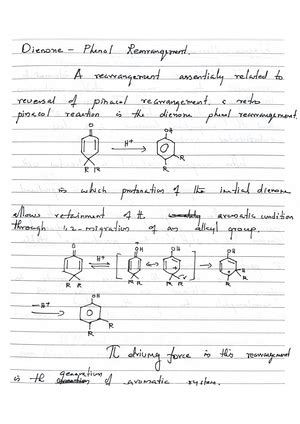 Dienone - Phenol Rearrangement.
A rearrangement essentialy related to
reversal of pinacol rearrangement, & retro
pinacol reaction is the dienone phenol rearrangement.
O
OH
H⁺
R R
R
R
is which protonation of the initial dienone
allows retainment of the aromatic condition
through 1,2-migration of an alkyl group.
O
⁺OH
OH
OH
H⁺
R R
R R
R R
H
R
R
-H⁺
OH
R
R
driving force in this rearrangement
is the generation of aromatic system.